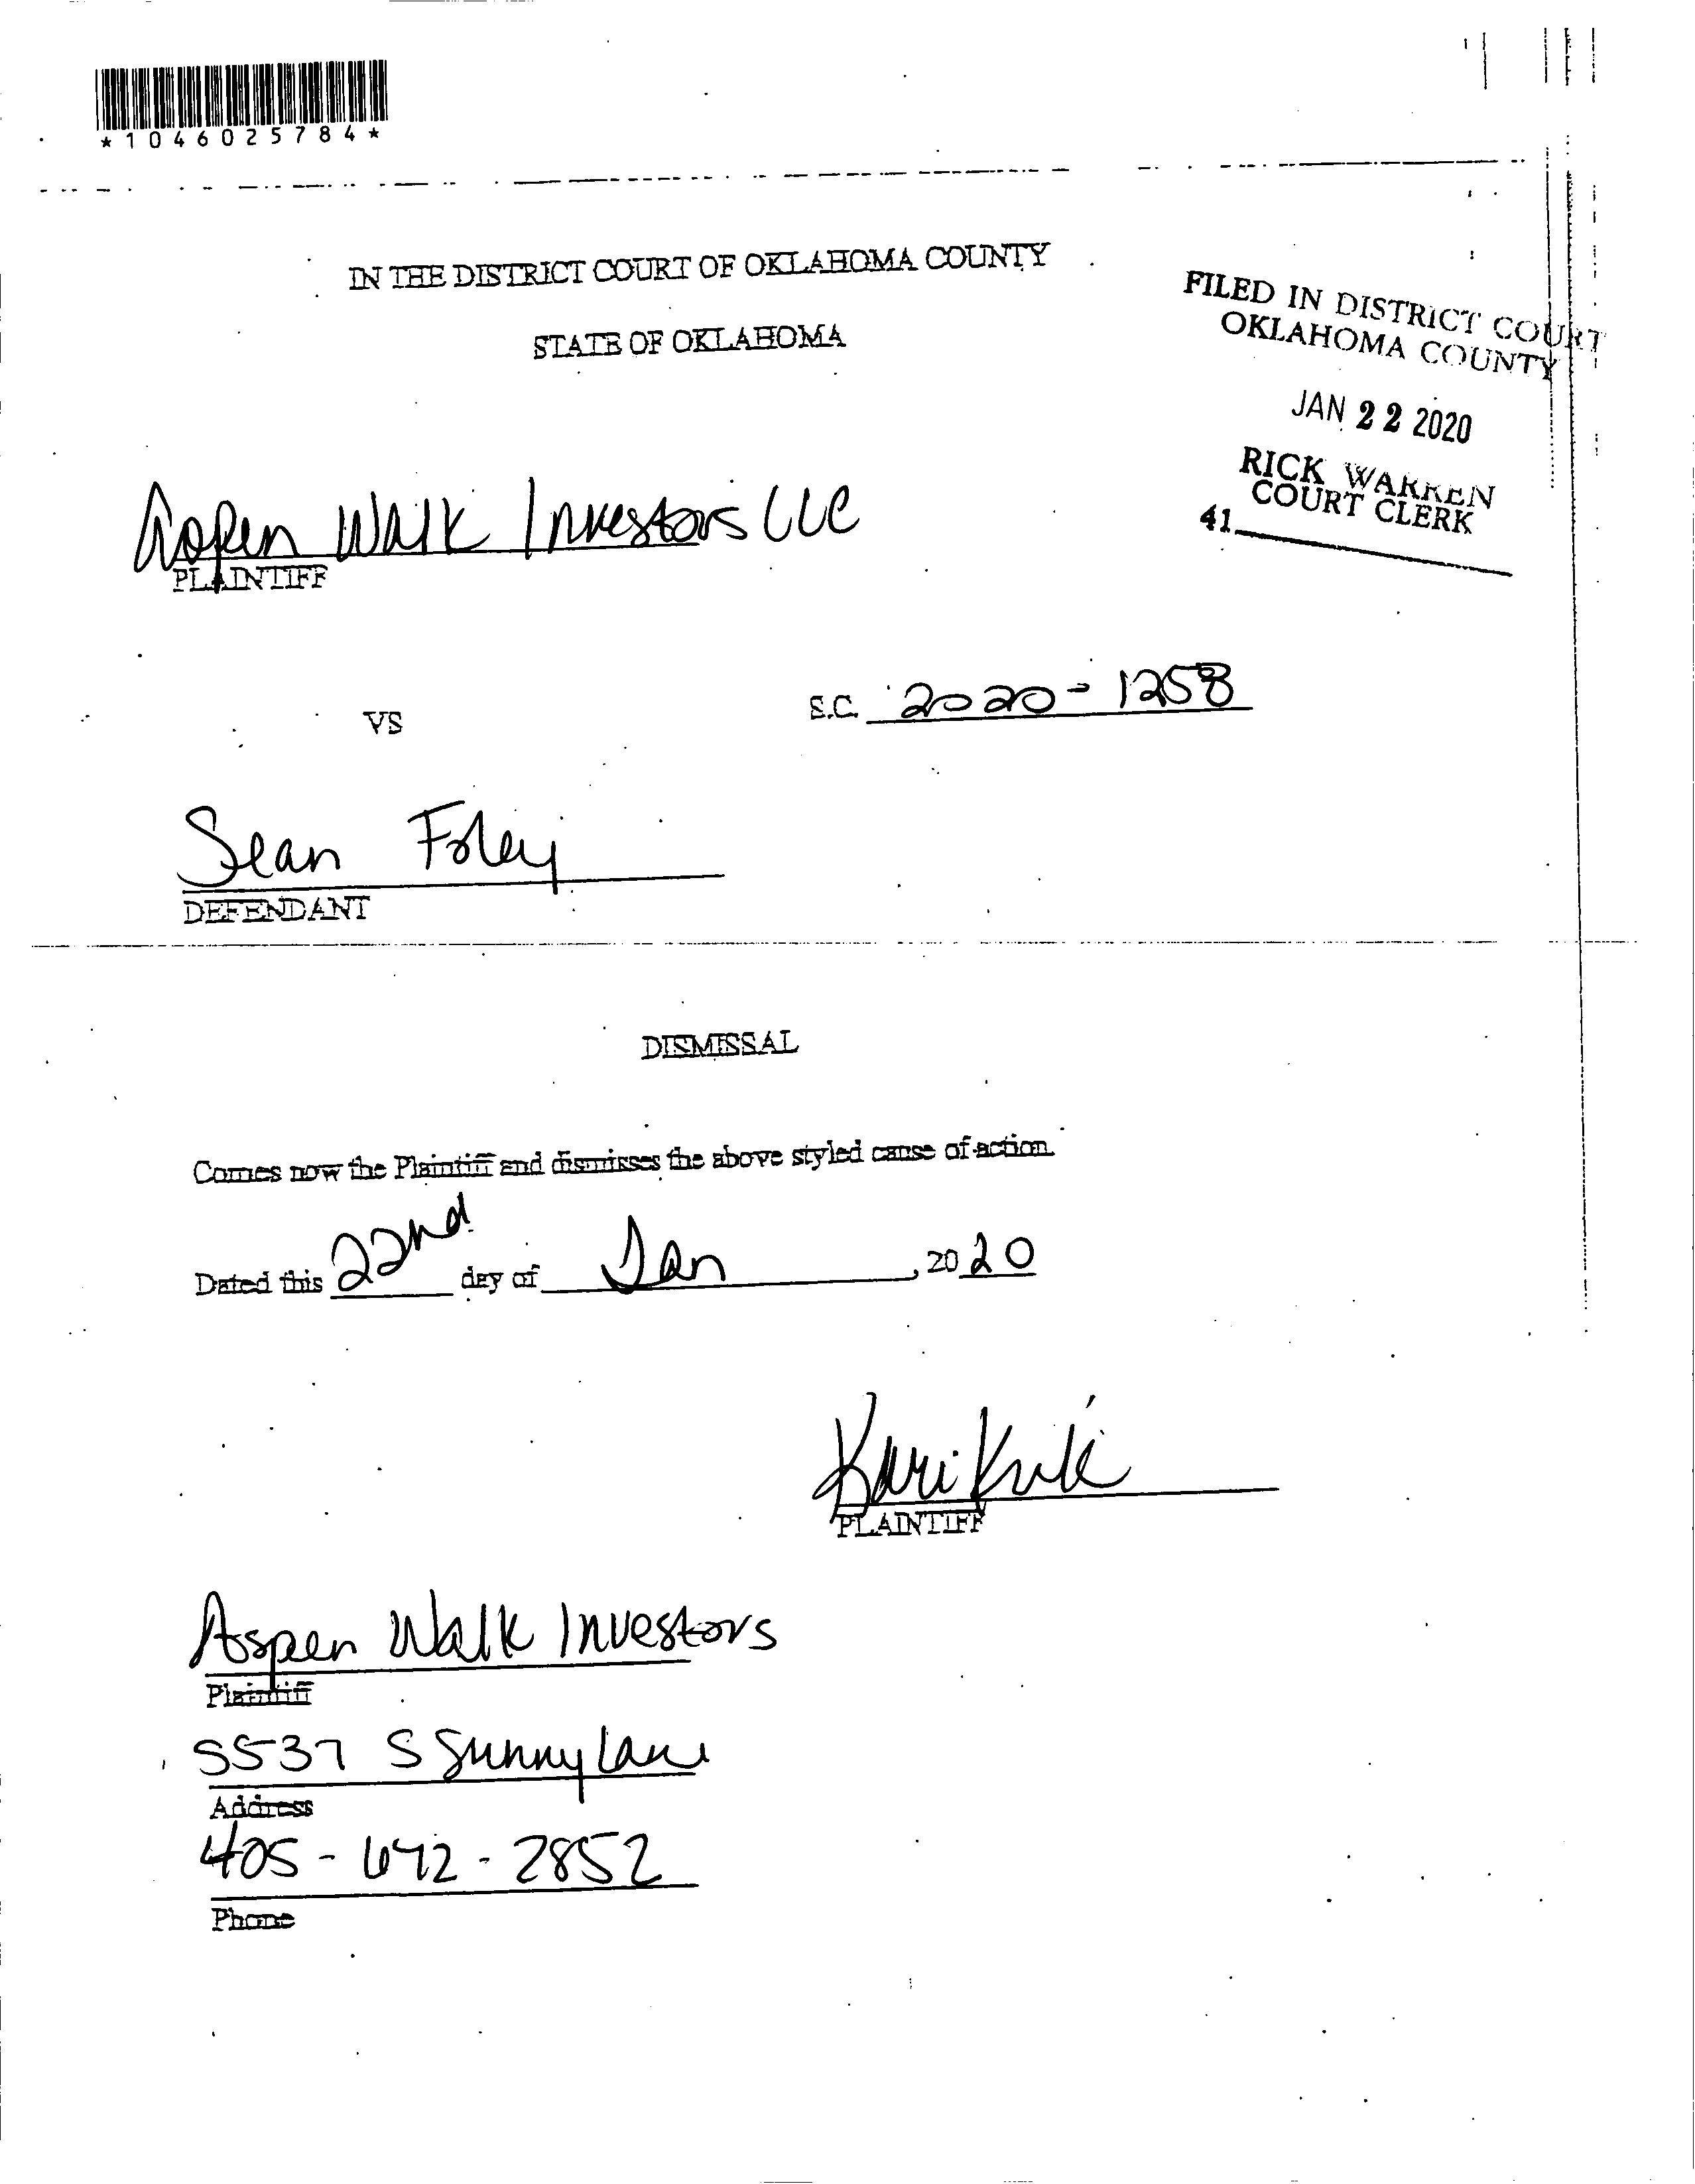 *1046025784*
IN THE DISTRICT COURT OF OKLAHOMA COUNTY
STATE OF OKLAHOMA
FILED IN DISTRICT COURT
OKLAHOMA COUNTY
JAN 22 2020
RICK WARREN
COURT CLERK
41
Aspen Walk Investors LLC
PLAINTIFF
VS
S.C. 2020-1258
Sean Foley
DEFENDANT
DISMISSAL
Comes now the Plaintiff and dismisses the above styled cause of action.
Dated this 22nd day of Jan, 2020
Kari
PLAINTIFF
Aspen Walk Investors
Plaintiff
5537 S Sunnylane
Address
405-672-2852
Phone